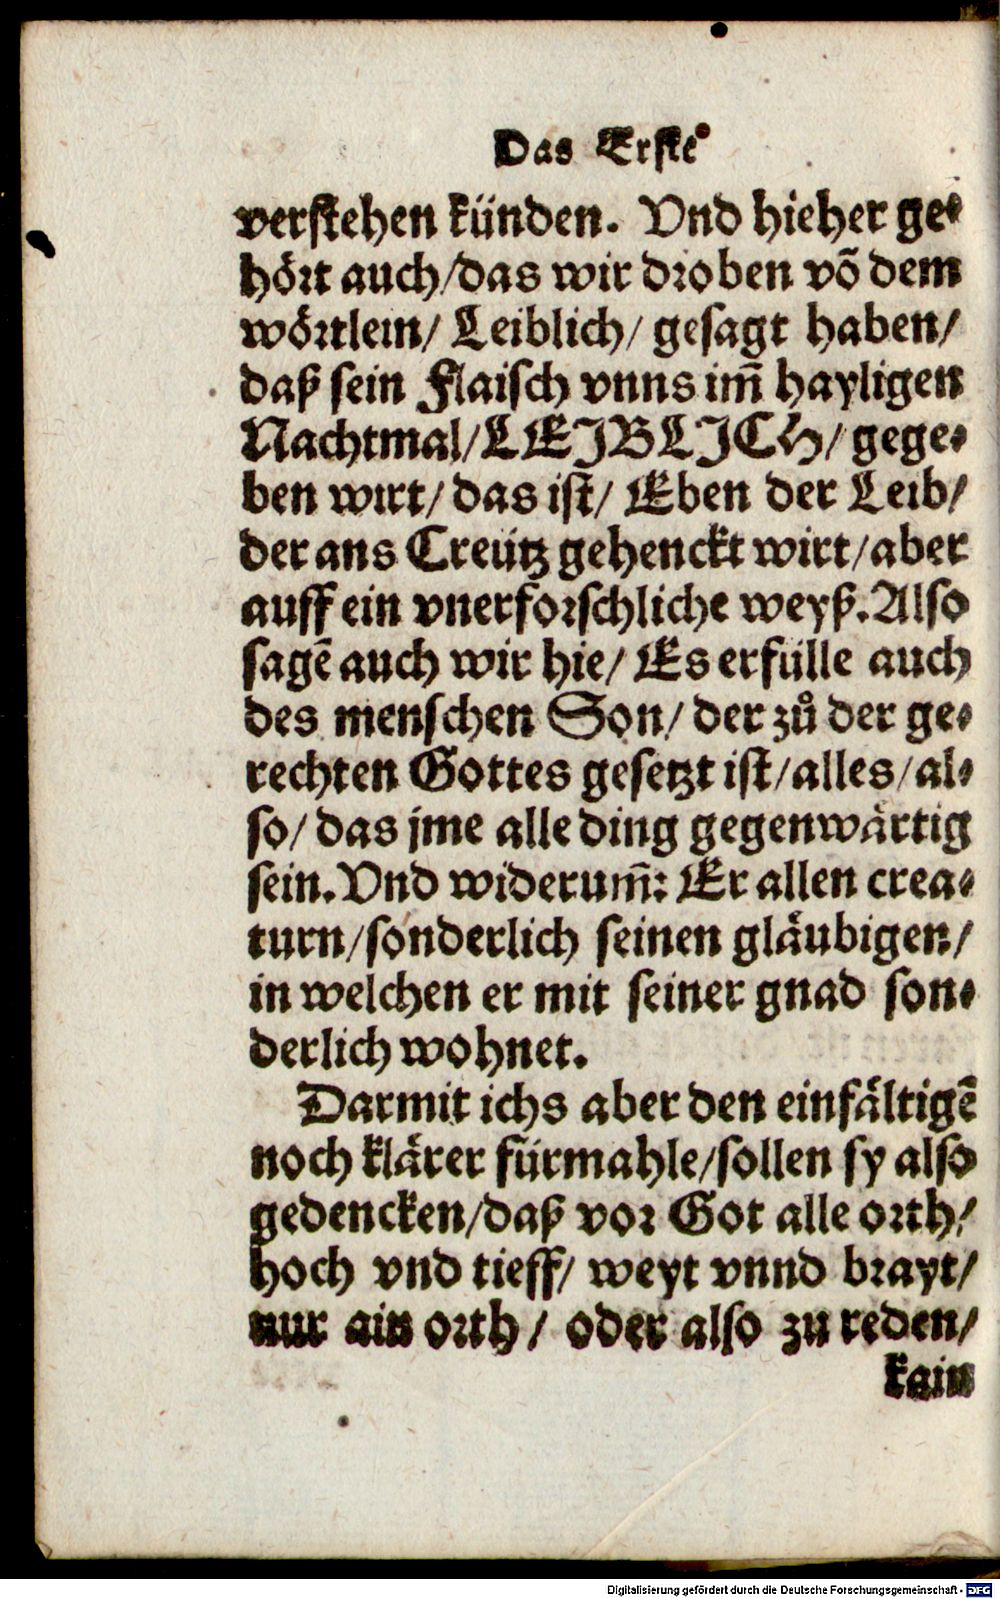 Das Erste
verstehen künden. Vnd hieher ge⸗
hört auch/das wir droben võ dem
wörtlein/ Leiblich/ gesagt haben/
daß sein Flaisch vnns im̃ hayligen
Nachtmal/LEIBLICH/ gege⸗
ben wirt/ das ist/ Eben der Leib/
der ans Creütz gehenckt wirt/aber
auff ein vnerforschliche weyß. Also
sagẽ auch wir hie/ Es erfülle auch
des menschen Son/ der zů der ge⸗
rechten Gottes gesetzt ist/alles/al⸗
so/ das jme alle ding gegenwärtig
sein. Vnd widerum̃: Er allen crea⸗
turn/sonderlich seinen gläubigen/
in welchen er mit seiner gnad son⸗
derlich wohnet.
Darmit ichs aber den einfältigẽ
noch klärer fürmahle/sollen sy also
gedencken/daß vor Got alle orth/
hoch vnd tieff/ weyt vnnd brayt/
nur ain orth/ oder also zu reden/
kain
Digitalisierung gefördert durch die Deutsche Forschungsgemeinschaft - DFG